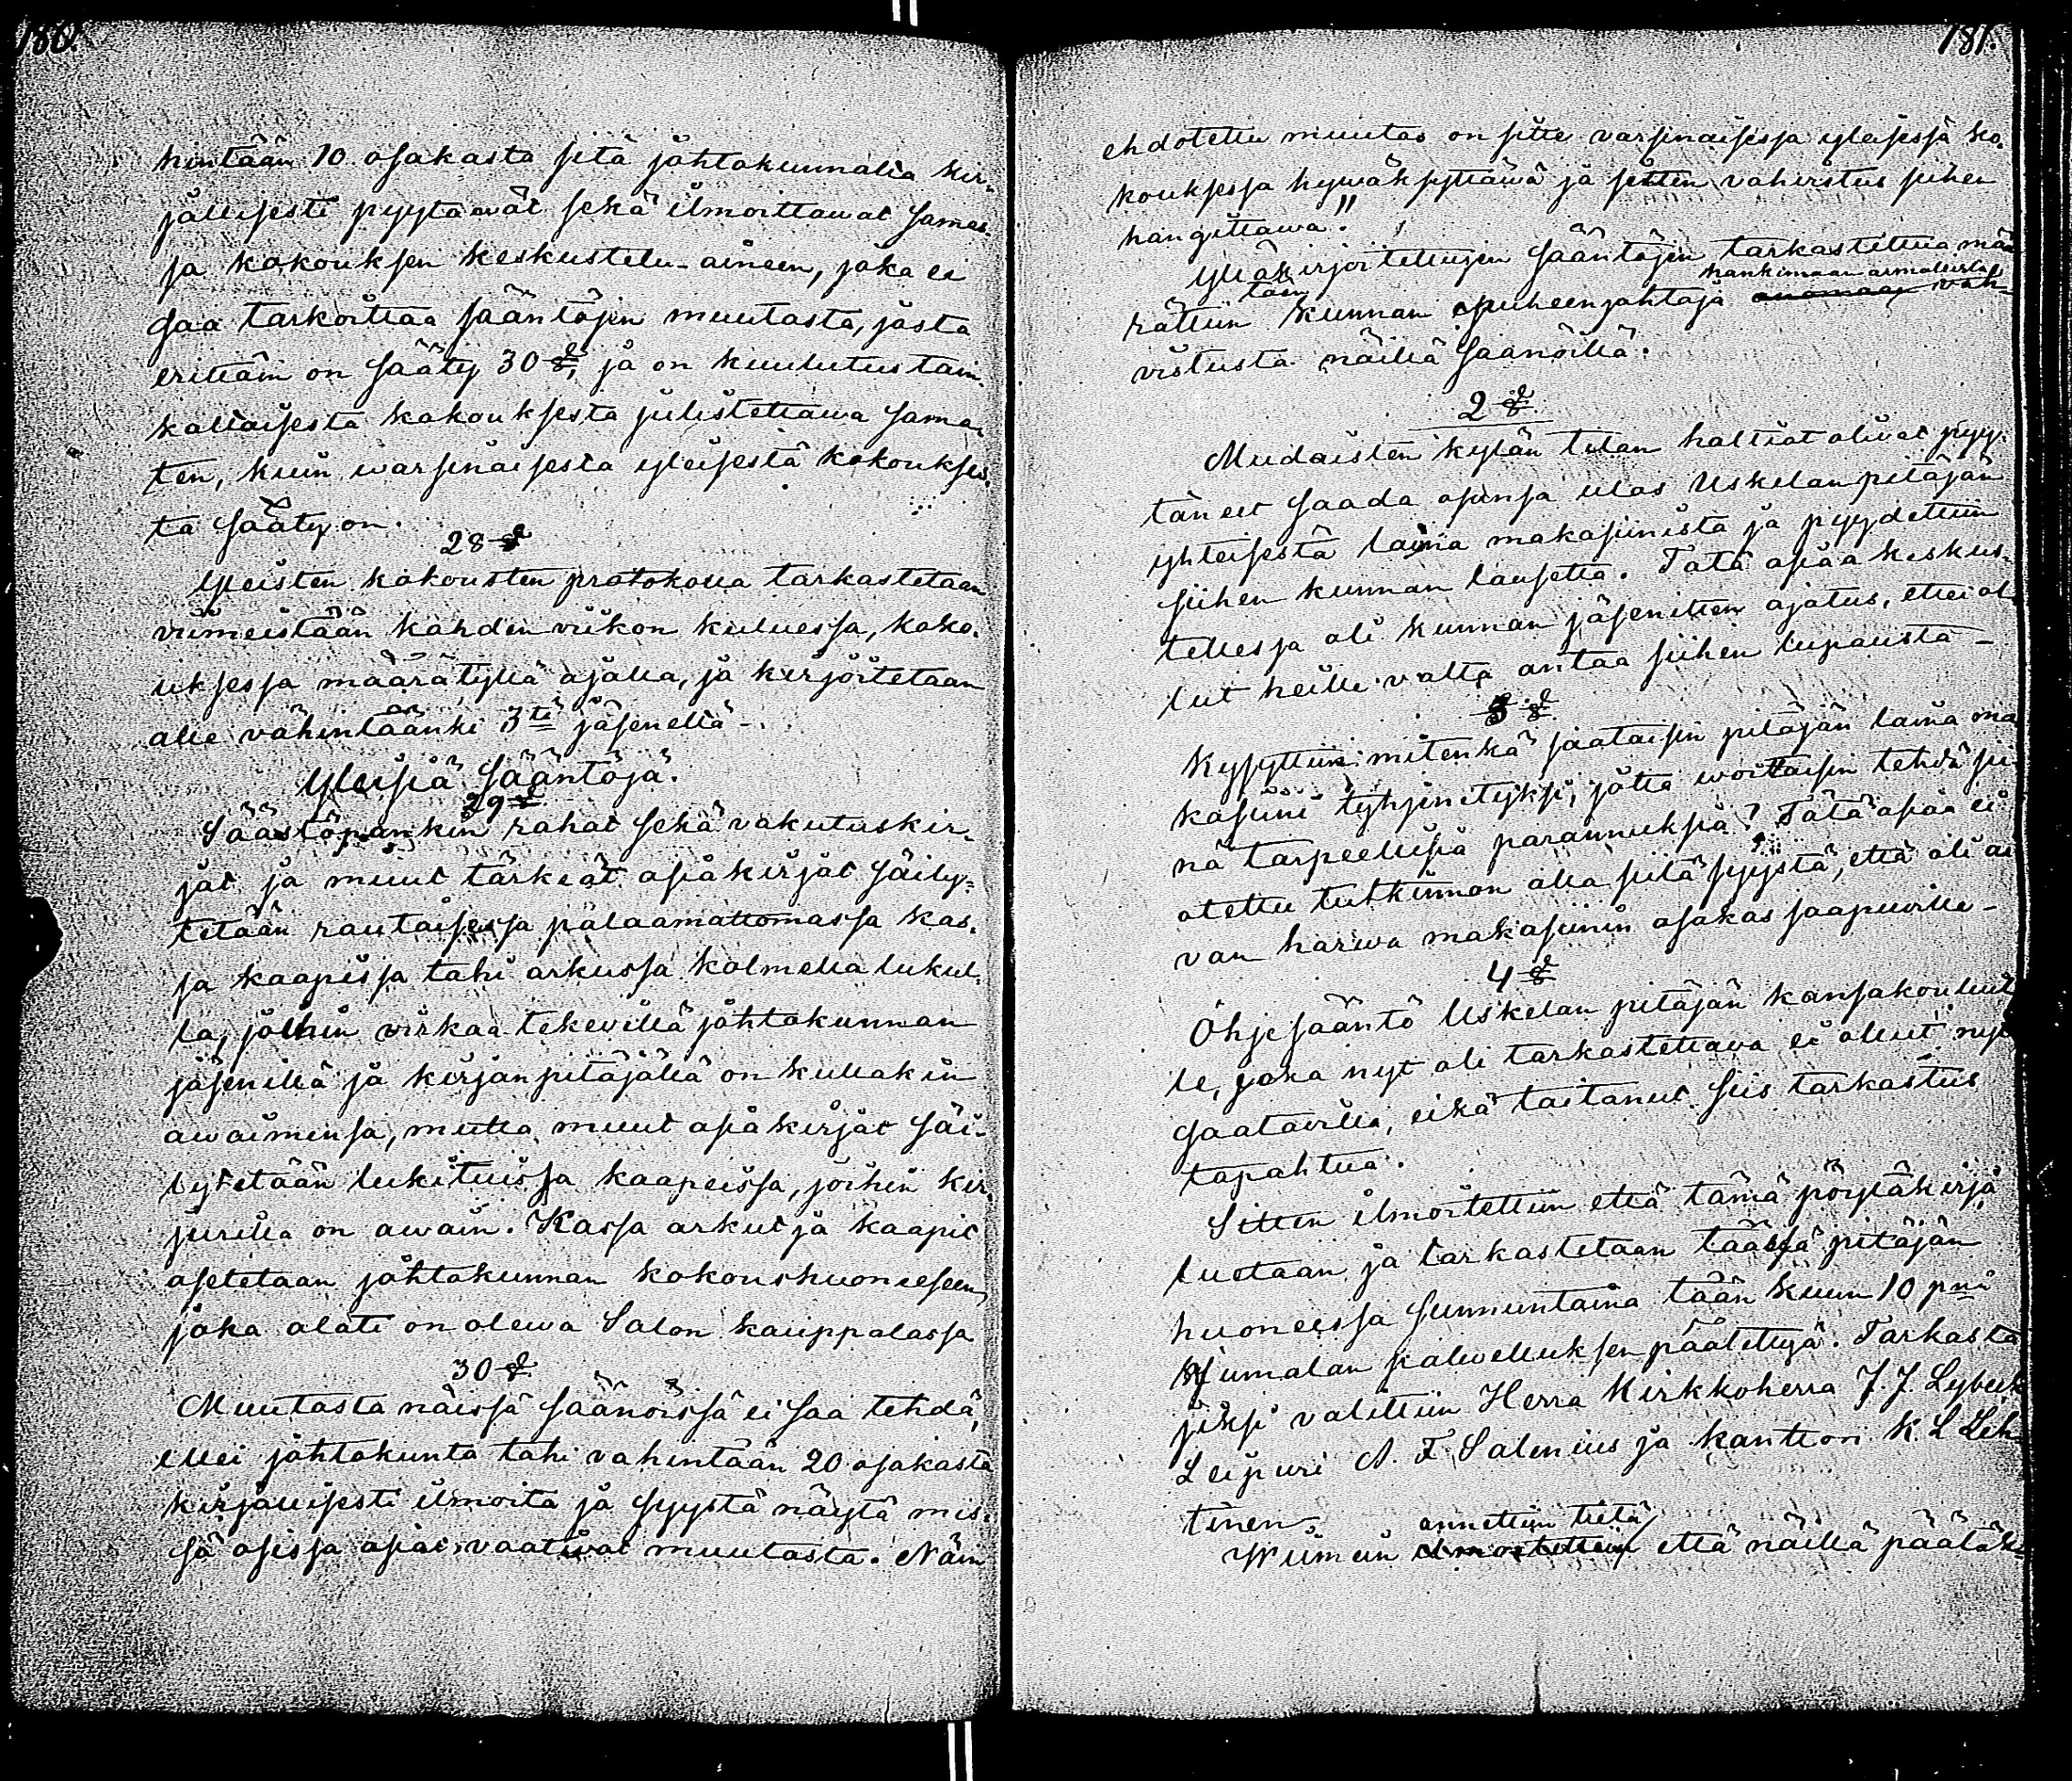 180.
hintään 10. osakasta sitä johtokunnalta kir-
jallisesti pyytäwät sekä ilmoittawat Samas-
sa kokouksen keskustelu-aineen, joka ei
saa tarkoittaa sääntöjen muutosta, josta
erittäin on sääty 30 §, ja on kuulutus täm-
kaltaisesta kokouksesta julistettawa Samo-
ten, kuin warsinaisesta yleisestä kokoukses-
ta sääty on.
28 §
Yleisten kokousten protokolla tarkastetaan
viimeistään kahden viikon kuluessa, koko-
uksessa määrätyllä ajalla, ja kirjoitetaan
alle vähintäänki 3lta jäseneltä -
Yleisiä Sääntöjä.
29 §
Säästöpankin rahat sekä vakutuskir-
jat ja muut tärkeät asiakirjat säily-
tetään rautaisessa palaamattomassa kas-
sa kaapissa tahi arkussa kolmella lukul-
la, joihin virkaa tekevillä johtokunnan
jäsenillä ja kirjanpitäjällä on kullakin
awaimensa, mutta muut asiakirjat säi-
lytetään lukituissa kaapeissa, joihin kir-
jurilla on awain. Kassa arkut ja kaapit
asetetaan johtokunnan kokoushuoneeseen,
joka alati on olewa Salon kauppalassa
30 §
Muutosta näissä säänöissä ei saa tehdä,
ellei johtokunta tahi vahintään 20 osakasta
kirjallisesti ilmoita ja syystä näytä mis-
sä osissa asiat vaatiwat muutosta. Näin
181.
ehdotettu muutos on sitte varsinaisessa yleisessä ko-
kouksessa hywäksyttäwä ja sitten vahvistus siihen
hangittawa."
Ylläkirjoitettujen Sääntöjen tarkastettua mää-
hankimaan armollista
rättiin tään kunnan puheenjohtaja anomaan vah-
vistusta näillä Saanöillä.
2 §
Mudaisten kylän tilan haltiat oliwat pyy-
täneet saada osansa ulos Uskelan pitäjän
yhteisestä laina makasiinista ja pyydettiin
siihen kunnan lausetta. Tätä asiaa keskus-
tellessa oli kunnan jäsenitten ajatus, ettei ol-
lut heille valta antaa siihen lupausta -
3 §
Kysyttiin mitenkä saataisin pitäjän laina ma-
kasiini tyhjänetyksi, jotta woittaisin tehdä sii-
nä tarpeellisia parannuksia? Tätä asiaa ei
otettu tutkinnon alla siitä syystä, että oli ai-
van harwa makasiinin osakas saapuvilla -
4 §
Ohje sääntö Uskelan pitäjän kansakouluil-
le, joka nyt oli tarkastettava ei ollut nyt
saatavilla, eikä taitanut siis tarkastus
tapahtua.
Sitten ilmoitettiin että tämä pöytäkirja
luetaan ja tarkastetaan täässä pitäjän
huoneessa Sunnuntaina tään kuun 10 pnä
Jumalan palvelluksen päätettyä. Tarkasta-
jiksi valittiin Herra Kirkkoherra J. J. Lybeck
Leipuri A. F. Salenius ja kanttori K. L. Leh-
tinen
annettiin tietä
Wiimein ilmoitettiin että näillä päätök-